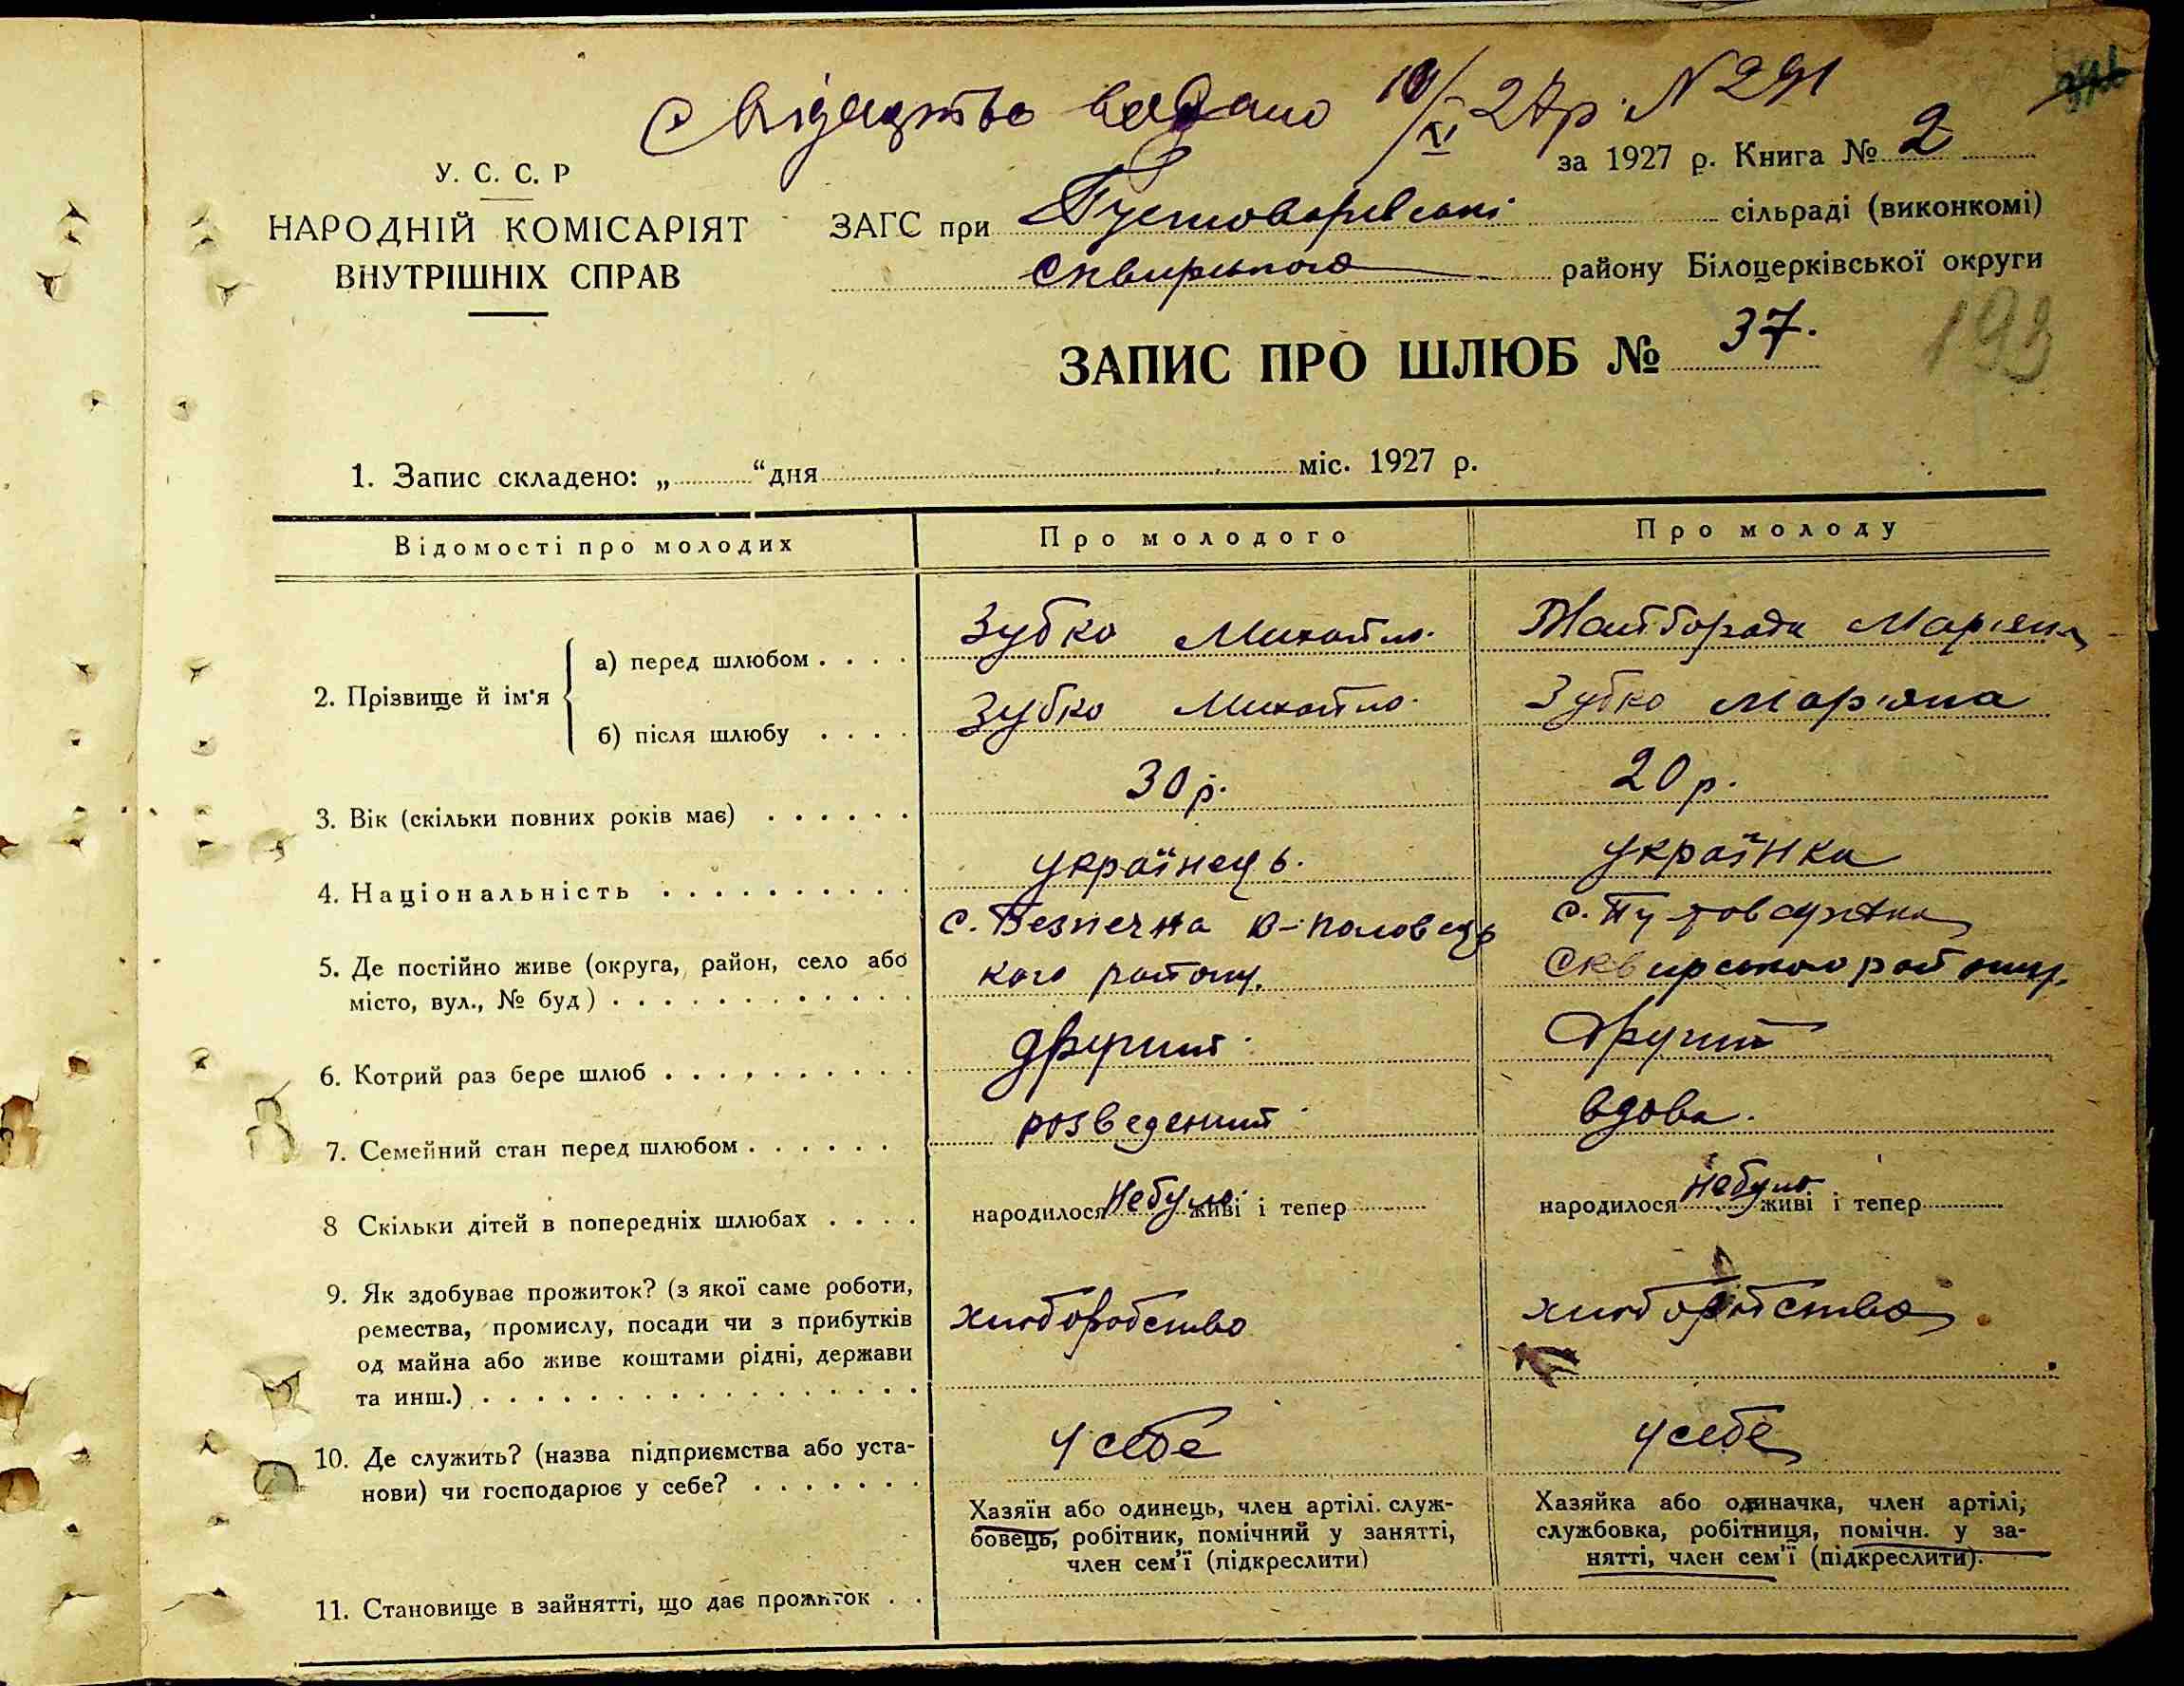 Свідоцтво видано 10/XI 27р. N 291
за 1927 р. Книга № 2
У. С. С. Р
НАРОДНІЙ КОМІСАРІЯТ
ВНУТРІШНІХ СПРАВ
ЗАГС при Пустоварівські сільраді (виконкомі)
Сквирського району Білоцерківської округи
ЗАПИС ПРО ШЛЮБ № 37.
193
1. Запис складено: „ “ дня міс. 1927 р.
Відомості про молодих Про молодого Про молоду
2. Прізвище й ім'я
а) перед шлюбом . . . . Зубко Михайло. Майборода Мар'яна
б) після шлюбу . . . . Зубко Михайло. Зубко Мар'яна
3. Вік (скільки повних років має) . . . . . . 30 р. 20 р.
4. Національність . . . . . . . . . . українець. українка
5. Де постійно живе (округа, район, село або с. Безпечна В-Половець с. Пустоварівка
місто, вул., № буд) . . . . . . . . . . . . . кого району. Сквирського району.
6. Котрий раз бере шлюб . . . . . . . . . . другий. Другий
7. Семейний стан перед шлюбом . . . . . . розведений. вдова.
8 Скільки дітей в попередніх шлюбах . . . . народилося небуло живі і тепер народилося небуло живі і тепер
9. Як здобуває прожиток? (з якої саме роботи,
ремества, промислу, посади чи з прибутків хліборобство хліборобство
од майна або живе коштами рідні, держави
та инш.) . . . . . . . . . . . . . . . . . .
10. Де служить? (назва підприємства або уста- у себе у себе
нови) чи господарює у себе? . . . . . . .
Хазяїн або одинець, член артілі. служ-
бовець, робітник, помічний у занятті,
член сем'ї (підкреслити)
Хазяйка або одиначка, член артілі,
службовка, робітниця, помічн. у за-
нятті, член сем'ї (підкреслити).
11. Становище в зайнятті, що дає прожиток . .